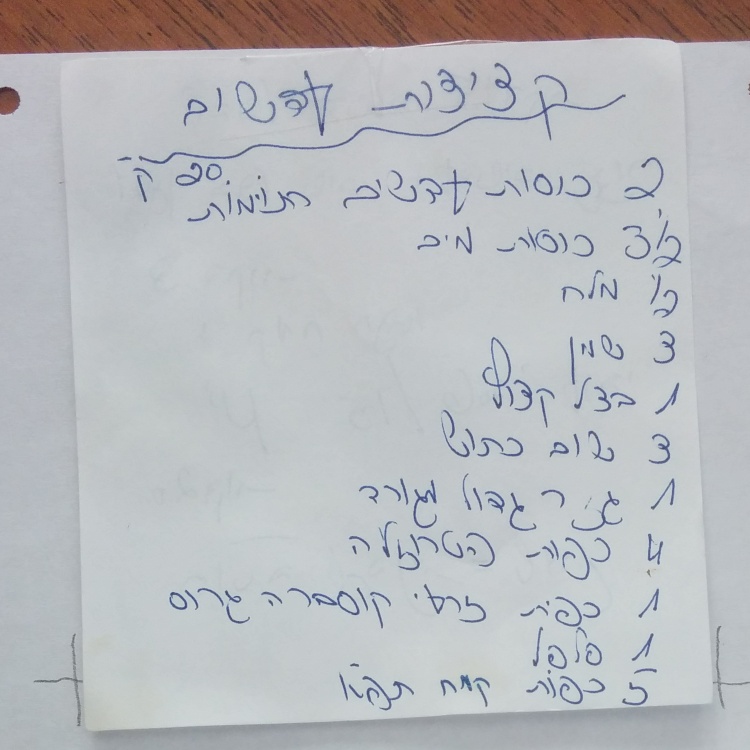 קציצות עדשים
2 כוסות עדשים כתומות
3 1/2 כוסות מים
1/2 מלח
3 שמן
1 בצל קצוץ
3 שום כתוש
1 גזר גדול מגורד
4 כפות פטרוזיליה
1 כפית זרעי קוסברה גרוס
1 פלפל
5 כפות קמח תפו"א